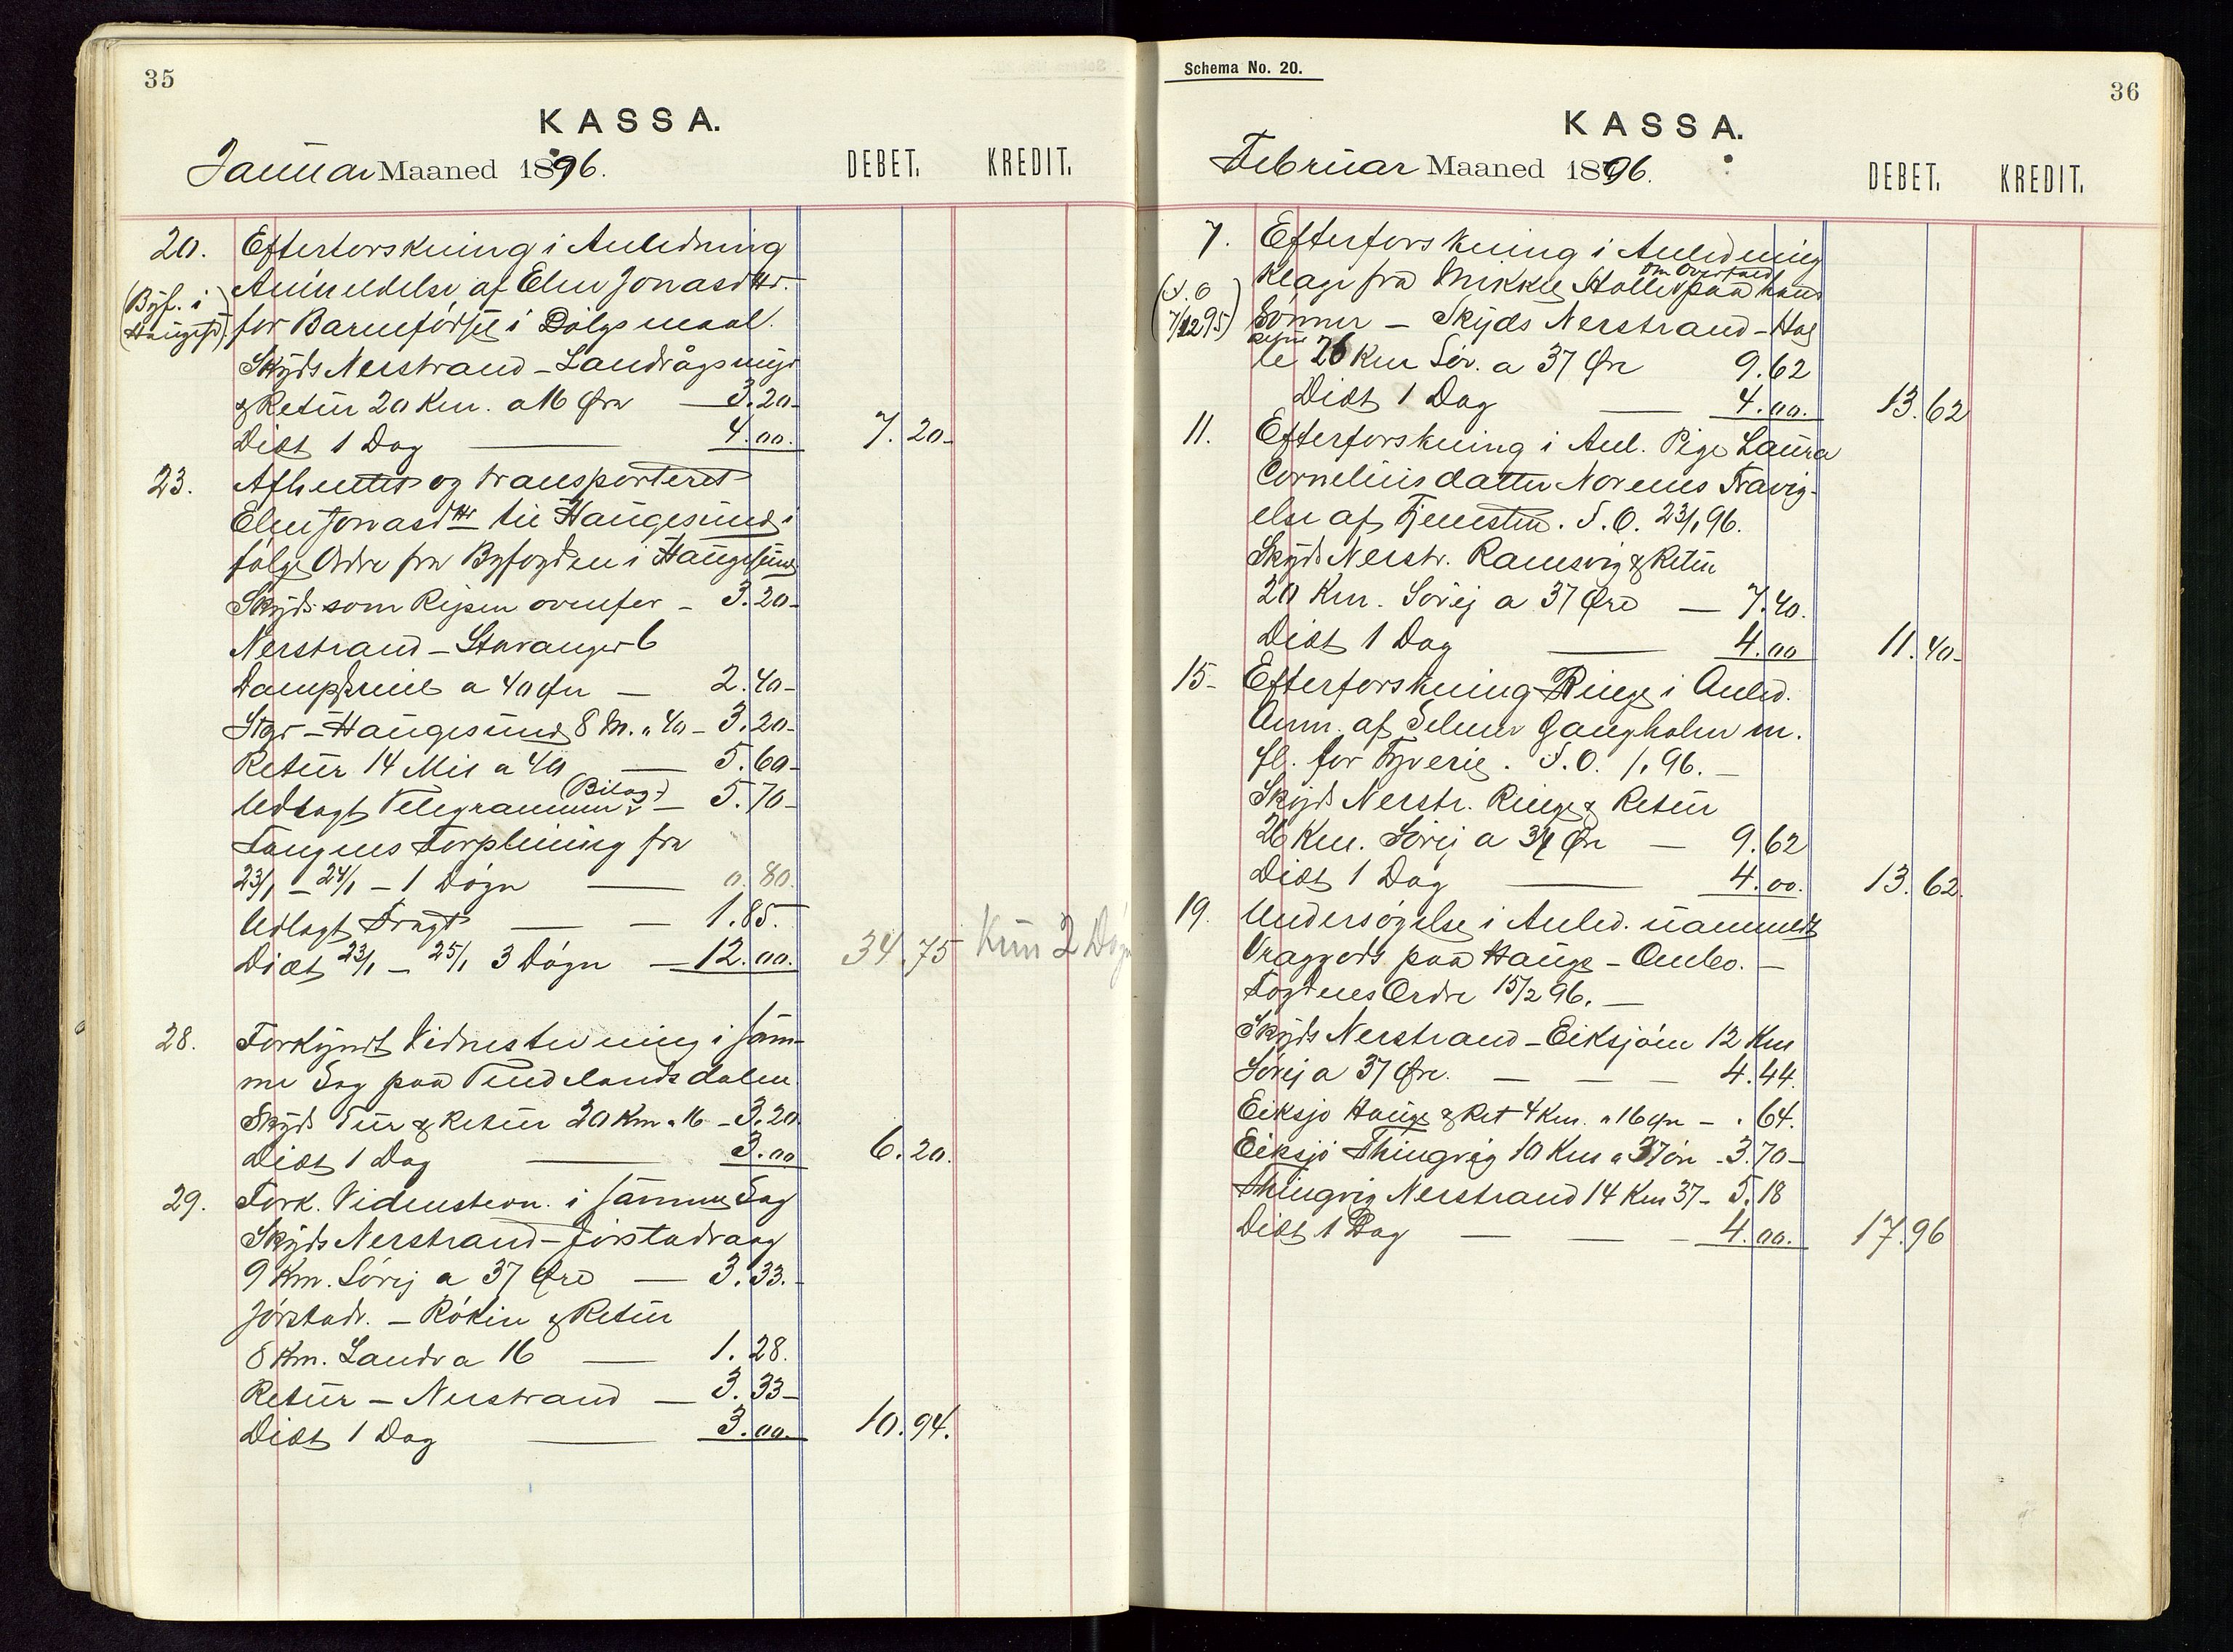 35
KASSA.
Januar Maaned 1896. DEBET. KREDIT.
20. Efterforskning i Anledning
Anmeldelse af Elen Jonasdttr.
(Byf. i Haugesd) for Barnefødsel i Dølgsmaal.
Skyds Nerstrand – Landvågsmyr
& Retur 20 Km. a 16 Øre — 3.20-
Diæt 1 Dag — 4.00. 7.20-
23. Afhentet og transporteret
Elen Jonasdttr til Haugesund i
følge Ordre fra Byfogden i Haugesund
Skyds som Rejsen ovenfor – 3.20-
Nerstrand – Stavanger 6
Dampskmil a 40 Øre — 2.40-
Stgr – Haugesund 8 M. a 40 – 3.20-
Retur 14 Mil a 40 — 5.60-
Udlagt Telegrammer (Bilag) — 5.70-
Fangens Forpleining fra
23/1 – 24/1 – 1 Døgn — 0.80.
Udlagt Fragt — — 1.85.
Diæt 23/1 – 25/1 3 Døgn — 12.00. 34.75 Kun 2 Døgn
28. Forkyndt Vidnestevning i sam-
me Sag paa Tindelandsdalen.
Skyds Tur & Retur 20 Km a 16 – 3.20
Diæt 1 Dag — 3.00 6.20.
29. Fork. Vidnestevn. i samme Sag
Skyds Nerstrand – Jørstadvaag
9 Km. Søvej a 37 Øre — 3.33.-
Jørstadv. – Røkin & Retur
8 Km. Landv a 16 — 1.28.
Retur – Nerstrand — 3.33-
Diæt 1 Dag — 3.00. 10.94.
Schema No. 20.
36
KASSA.
Februar Maaned 1896. DEBET. KREDIT.
7. Efterforskning i Anledning
Klage fra Mikkel Halle om Overfald paa hans
(S.O 7/12 95) Sønner – Skyds Nerstrand – Hal
le retur 26 Km Søv. a 37 Øre 9.62
Diæt 1 Dag — 4.00. 13.62
11. Efterforskning i Anl. Pige Laura
Corneliusdatter Norenes Fravig-
else af Tjenesten. S.O. 23/1 96.
Skyds Nerstr. Ramsvig & Retur
20 Km. Søvej a 37 Øre — 7.40.
Diæt 1 Dag — 4.00 11.40-
15- Efterforskning Ringe i Anled.
Anm. af Selmer Gangholm m.
fl. for Tyveri. S.O. /1 96. –
Skyds Nerstr. Ringe & Retur
26 Km. Søvej a 37 Øre — 9.62
Diæt 1 Dag — 4.00. 13.62.
19. Undersøgelse i Anled. uanmeldt
Vraggods paa Hauge – Ombo. –
Fogdens Ordre 15/2 96. –
Skyds Nerstrand – Eiksjøen 12 Km
Søvej a 37 Øre. — — — 4.44.
Eiksjø Hauge & Ret 4 Km. a 16 Øre – . 64.
Eiksjø Thingvig 10 Km a 37 øre - 3.70-
Thingvig Nerstrand 14 Km 37 – 5.18
Diæt 1 Dag — — — 4.00. 17.96